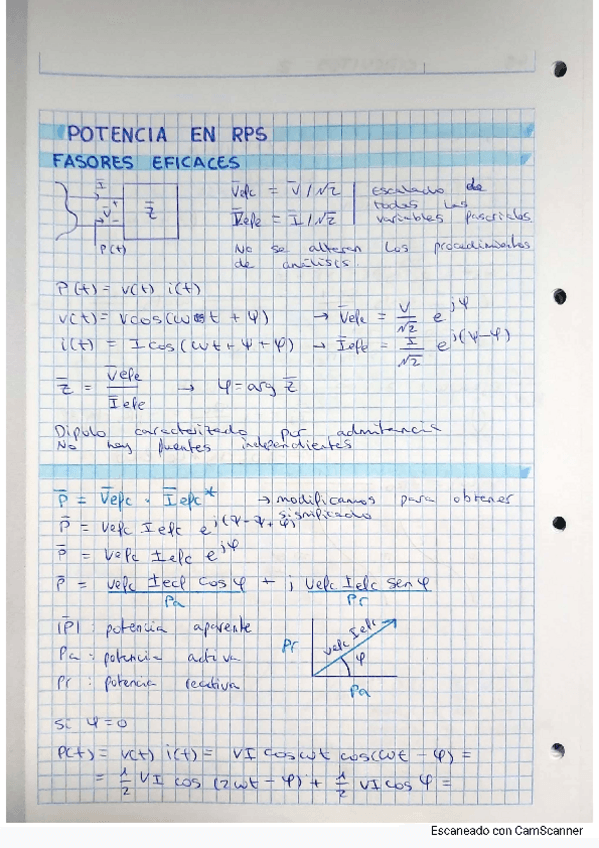 POTENCIA EN RPS
FASORES EFICACES
Ī
V̄ +
Z̄
P(t)
V̄efc = V̄/√2
Īefc = Ī/√2
Escalado de
todas las
variables fasoriales
No se alteran los procedimientos
de análisis.
P(t) = v(t) i(t)
v(t) = V cos(ωt + ψ) → V̄efc = V/√2 e^jψ
i(t) = I cos(ωt + ψ + φ) → Īefc = I/√2 e^j(ψ-φ)
Z̄ = V̄efc/Īefc → φ = arg Z̄
Dipolo caracterizado por admitancia
No hay fuentes independientes
P̄ = V̄efc · Īefc* → modificamos para obtener
significado
P̄ = Vefc Iefc e^j(ψ-ψ+φ)
P̄ = Vefc Iefc e^jφ
P̄ = Vefc Iecf cos φ + j Vefc Iefc sen φ
Pa Pr
|P̄| : potencia aparente
Pa : potencia activa
Pr : potencia reactiva
Pr
Vefc Iefc
φ
Pa
si ψ = 0
P(t) = v(t) i(t) = VI cos ωt cos(ωt - φ) =
= 1/2 VI cos (2ωt - φ) + 1/2 VI cos φ =
Escaneado con CamScanner